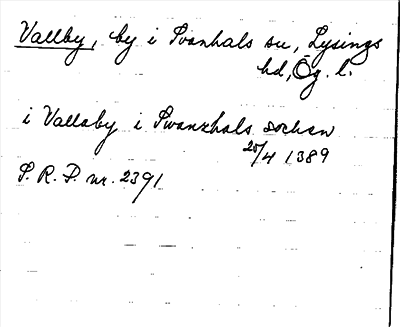 Vallby, by i Svanhals sn, Lysings
hd, Ög. l.
i Vallaby i Swanxhals sochen
25/4 1389
S. R. P. nr. 2391